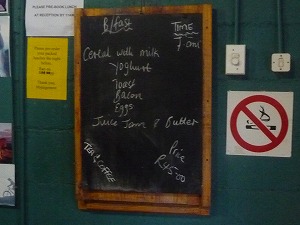 PLEASE PRE-BOOK LUNCH
AT RECEPTION BY 11AM
B/fast
TIME
7 am
Cereal with milk
Yoghurt
Toast
Bacon
Eggs
Juice Jam & Butter
TEA & COFFEE
Price
R45.00